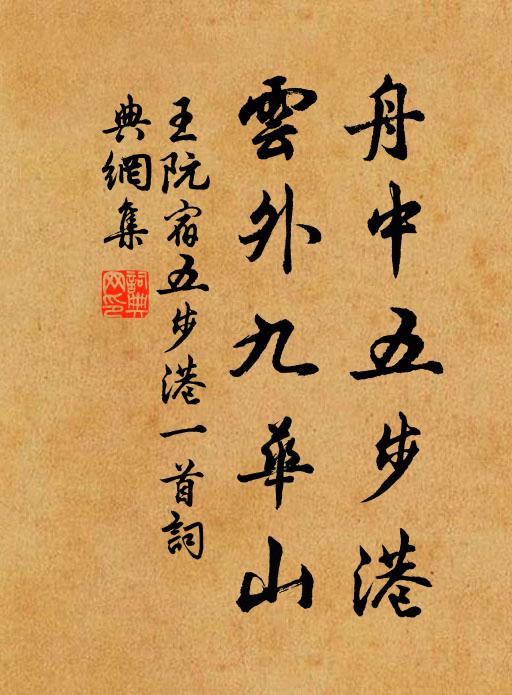 舟中五步港
雲外九華山
王阮宿五步港一首詞
典網集
詞典網印